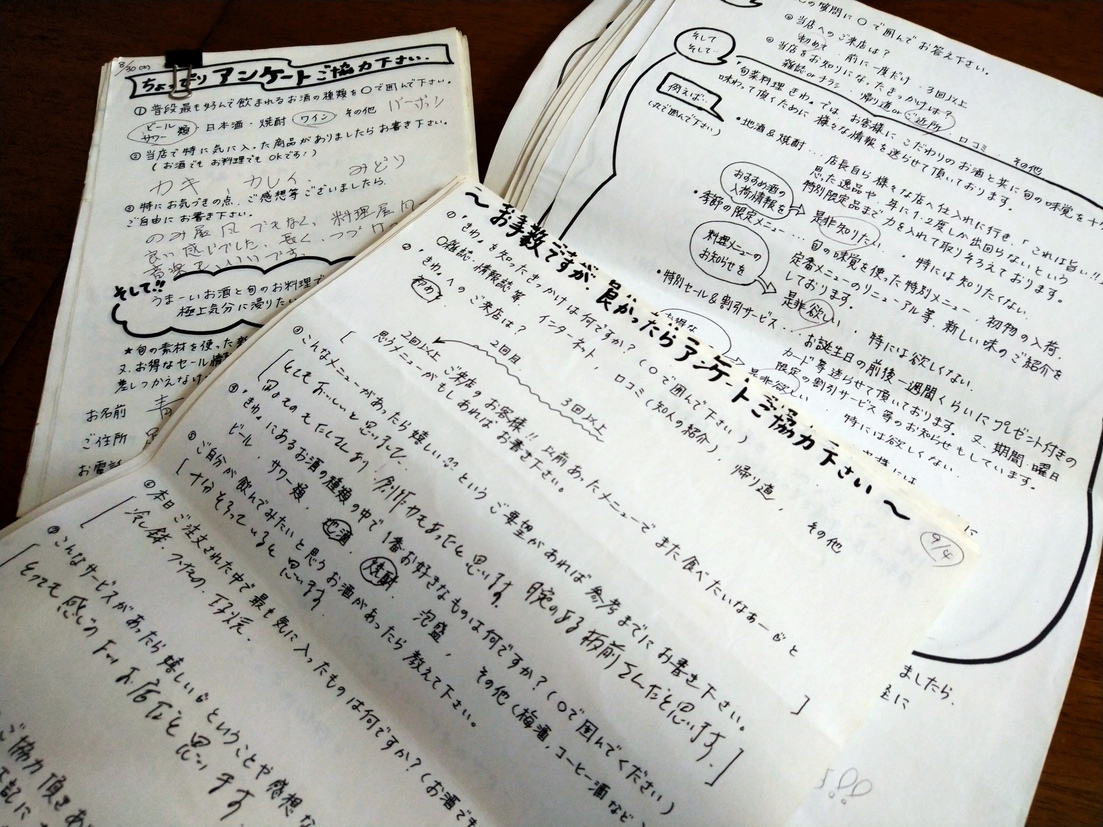 8/30(月)
ちょっぴり アンケートご協力下さい.
① 普段最も好んで飲まれるお酒の種類を○で囲んで下さい。
ビール サワー類 日本酒・焼酎 ワイン その他 バーボン
② 当店で特に気に入った商品がありましたらお書き下さい。
(お酒でも お料理でも OKです!)
カキ、カレイ、みどり
③ 特にお気づきの点、ご感想等ございましたら、
ご自由にお書き下さい。
のみ屋風でもなく、料理屋風
良い感じでした。
音楽も いいです。
そして!!
うまーいお酒と旬のお料理で
極上気分に浸りたい
★旬の素材を使った新
又、お得なセール情
差しつかえなけ
お名前
ご住所
お電話
の質問に○で囲んでお答え下さい。
◎当店へのご来店は?
初めて 前に一度だけ 3回以上
◎当店をお知りになったきっかけは?
雑誌 or チラシ 帰り道 or ご近所 口コミ その他
そして そして…
旬菜料理 きわ。では、お客様に、こだわりのお酒と共に旬の味覚を十分
味わって頂くために 様々な情報を送らせて頂いております。
例えば…
(○で囲んで下さい)
・地酒&焼酎…店長自ら様々な店へ仕入れに行き、「これは旨い!!」と
思った逸品や、年に1・2度しか出回らないという
特別限定品まで力を入れて取りそろえております。
おすすめ酒の入荷情報を
是非知りたい ・ 特には知りたくない
・季節の限定メニュー…旬の味覚を使った特別メニュー、初物の入荷、
定番メニューのリニューアル等、新しい味のご紹介を
しております
料理メニューのお知らせを
是非欲しい ・ 特には欲しくない
・特別セール&割引サービス…お誕生日の前後一週間くらいにプレゼント付きの
カード等送らせて頂いております。又、期間、曜日
限定の割引サービス等のお知らせもしています。
お得な
是非欲しい ・ 特には欲しくない
客様には
ましたら、
〜お手数ですが、良かったらアンケートご協力下さい〜
9/4
① "きわ。"を知ったきっかけは何ですか?(○で囲んで下さい)
雑誌・情報誌等 インターネット、口コミ(知人の紹介)、帰り道、その他
② "きわ。"へのご来店は?
初回 2回目 3回以上
2回以上 ご来店のお客様!! 以前あったメニューでまた食べたいなあーと
思うメニューがもしあればお書き下さい。
③ こんなメニューがあったら嬉しい!! という ご要望があれば 参考までにお書き下さい。
とてもおいしいと思いました。
創作力もあったと思います。腕のある板前さんだと思います。
④ "きわ。"にあるお酒の種類の中で1番お好きなものは何ですか?(○で囲んでください)
ビール、サワー類、地酒、焼酎、泡盛、その他(梅酒、コーヒー酒など)
⑤ ご自分が飲んでみたいと思うお酒があったら教えて下さい。
十分そろっていると思います。
⑥ 本日ご注文された中で最も気に入ったものは何ですか?(お酒でも
冷し鉢、つくね
⑦ こんなサービスがあったら嬉しいということや感想な
とても感じの良いお店だと思います
ご協力頂きあ
下記に